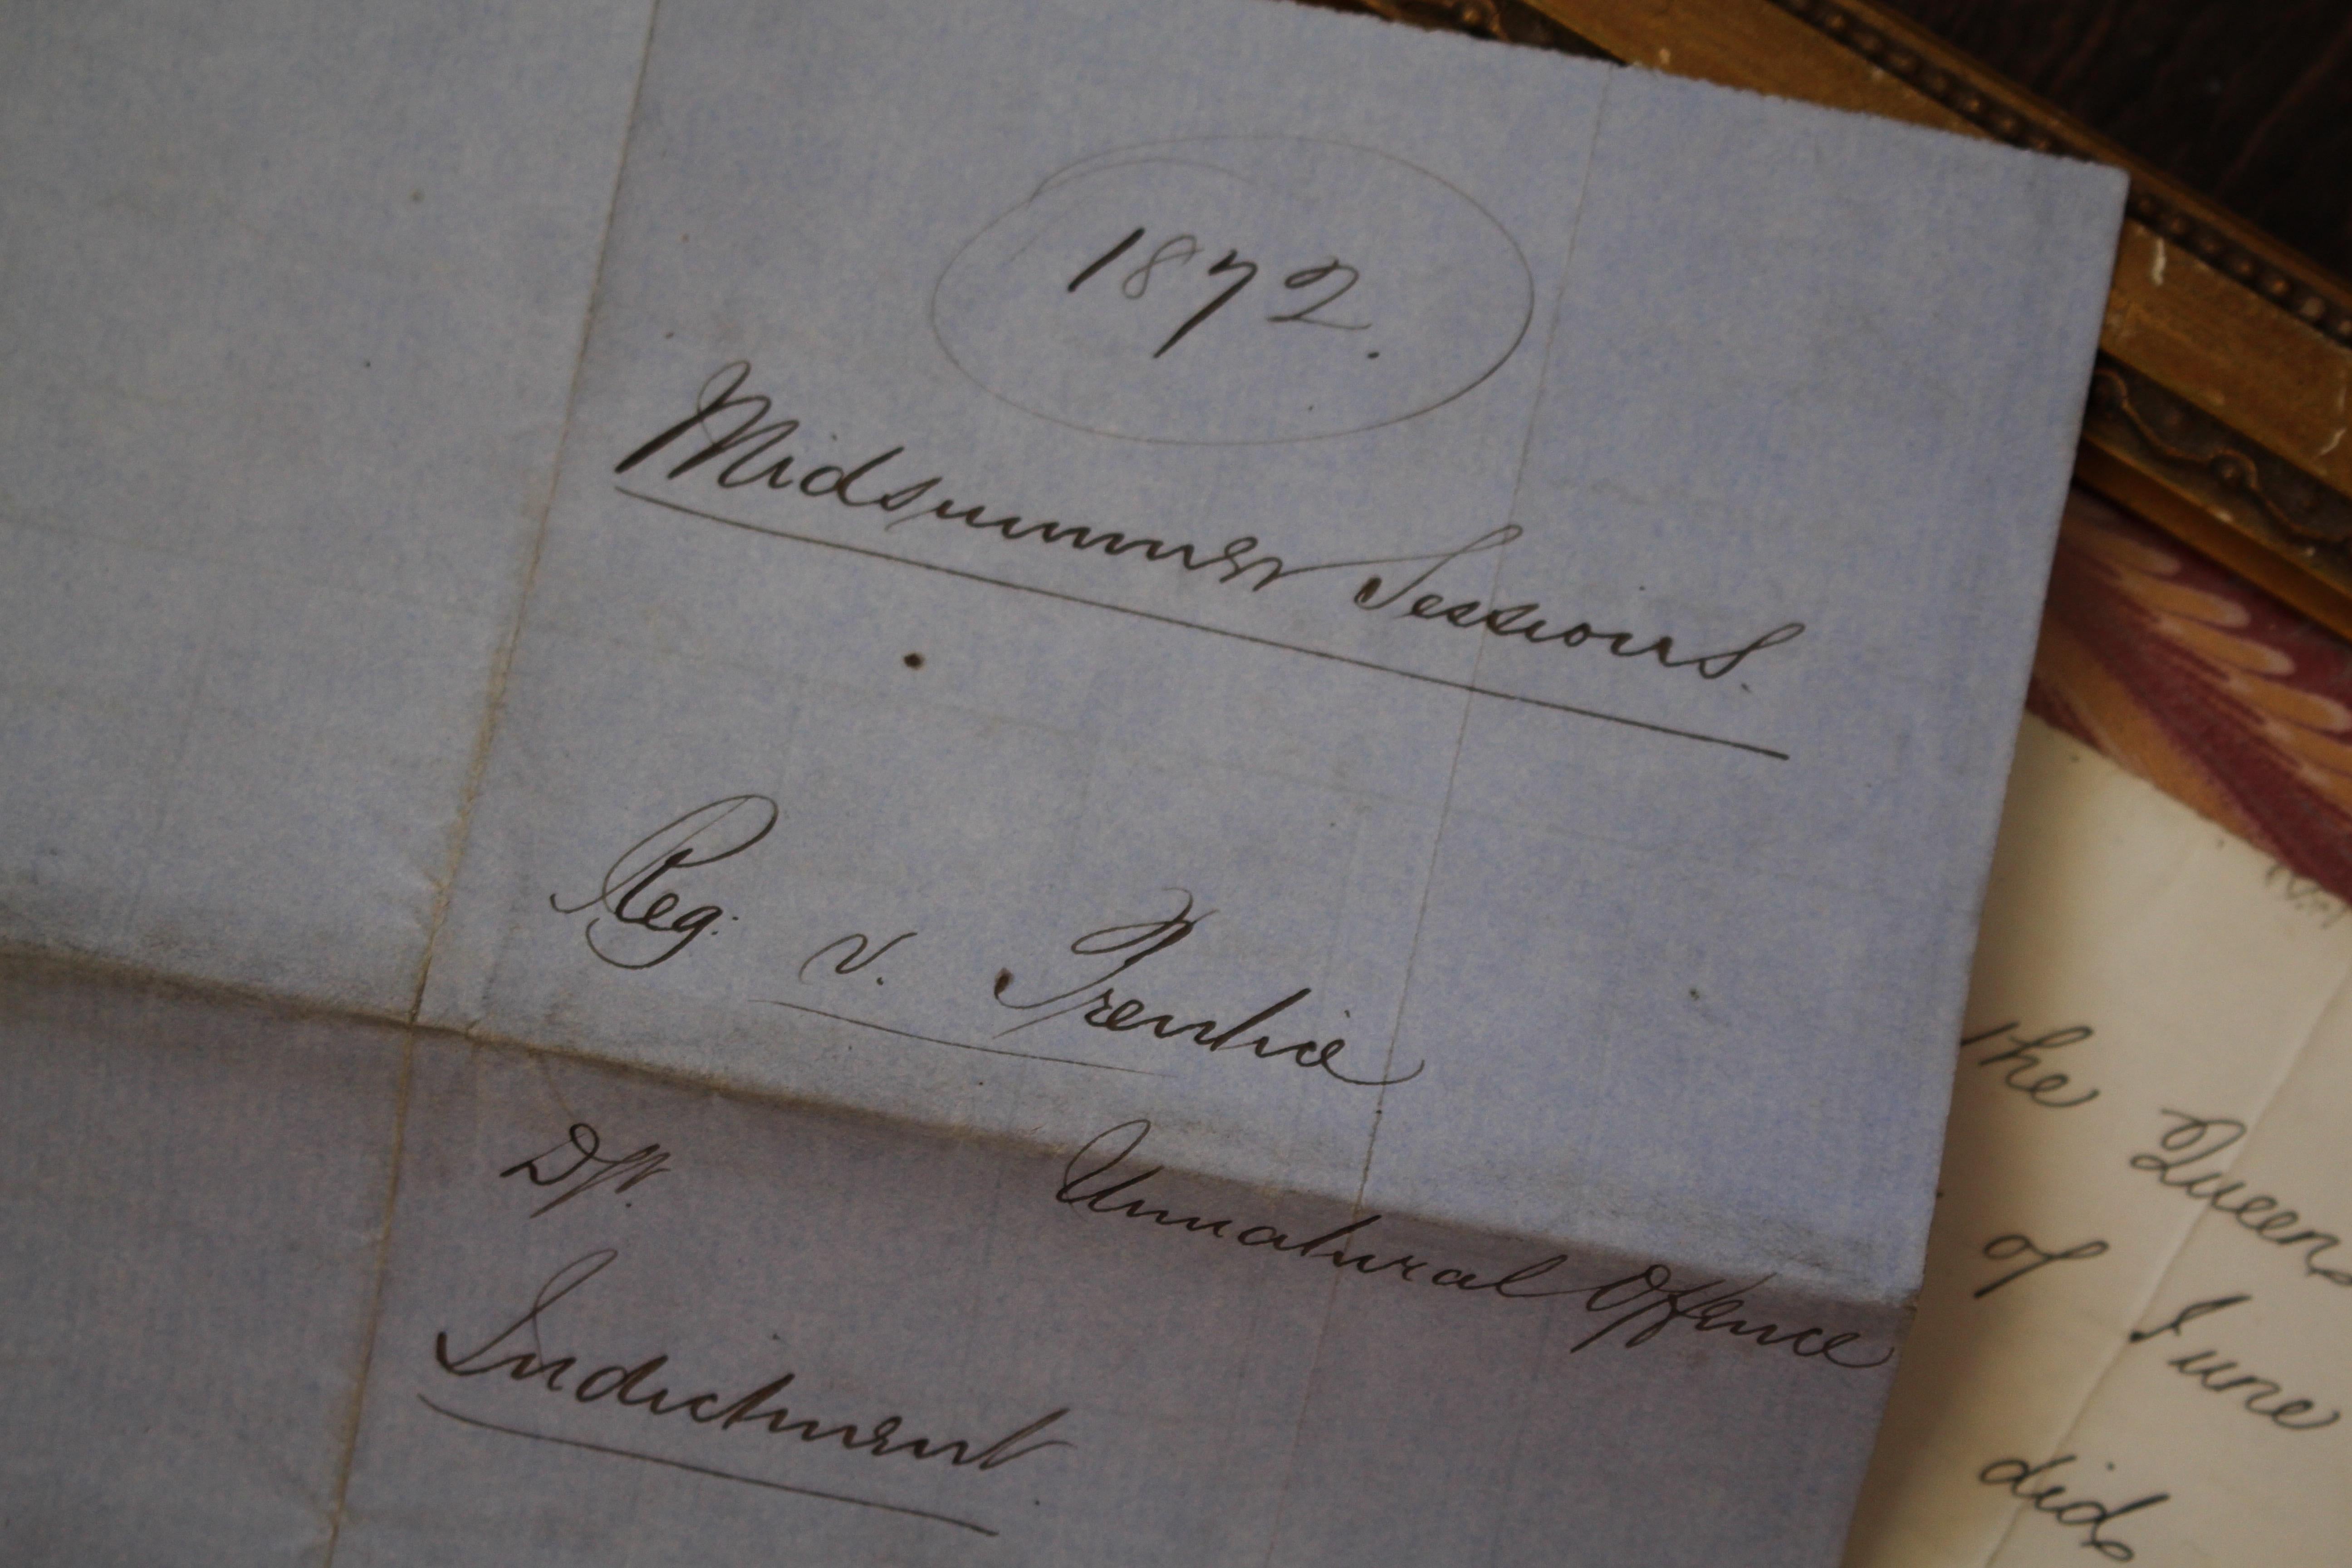 1872.
Midsummer Sessions.
Reg. v. Prentice
Unnatural Offence
Indictment
the Queens
of June
did